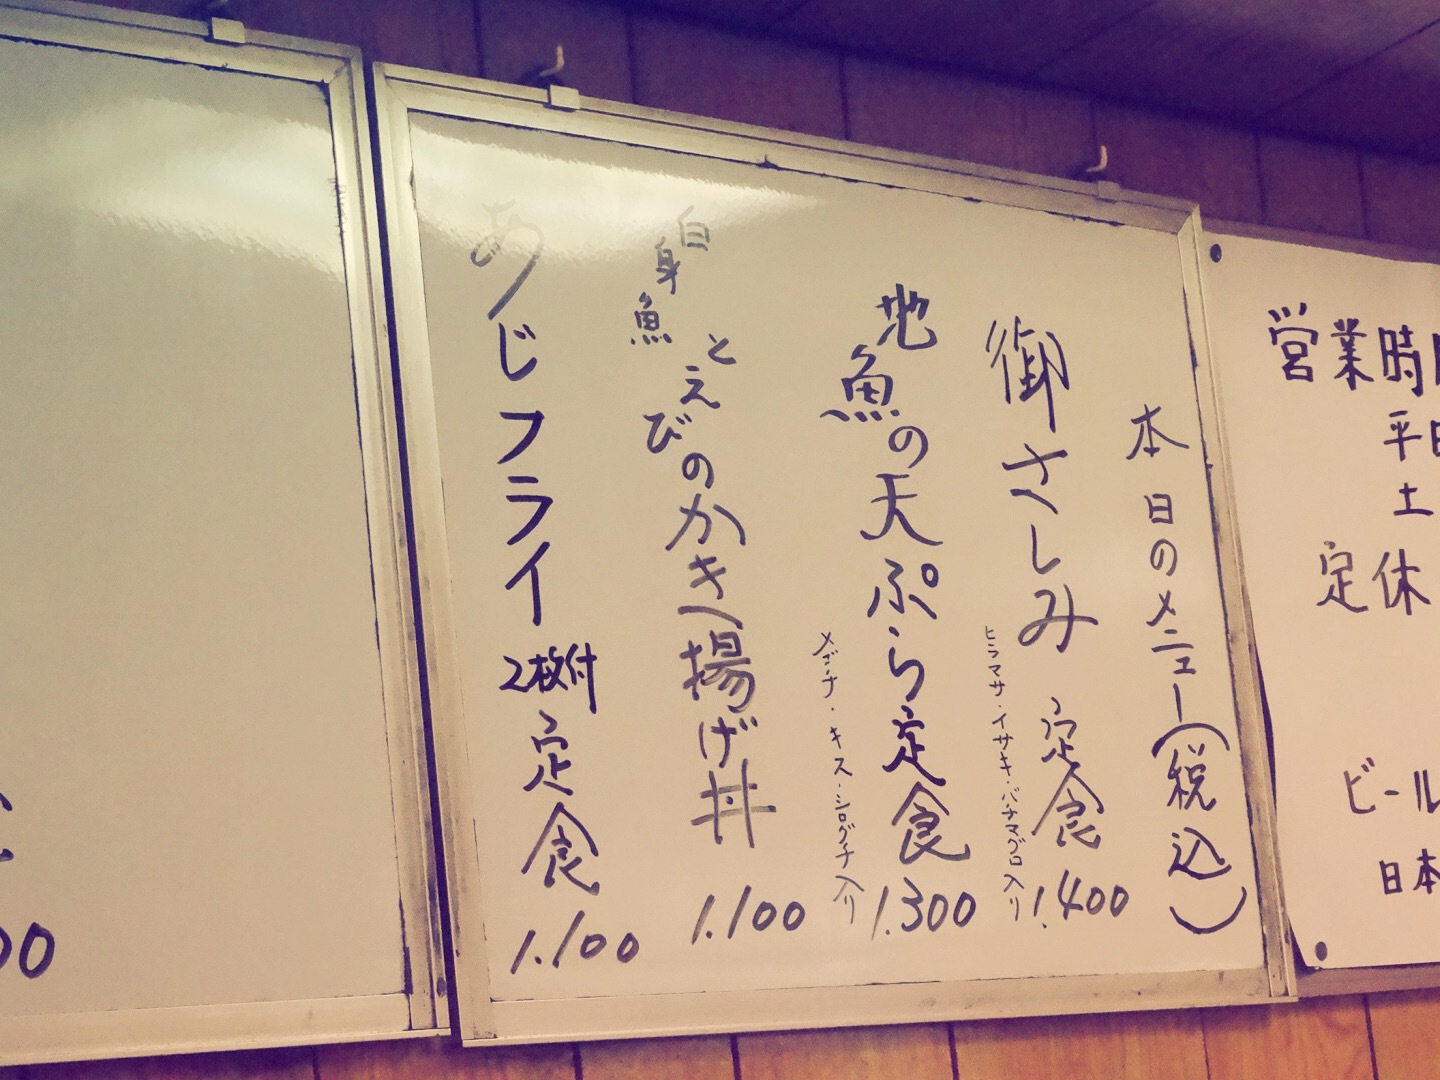 本日のメニュー(税込)
御さしみ定食 1.400
ヒラマサ・イサキ・バチマグロ入り
地魚の天ぷら定食 1.300
メゴチ・キス・シログチ入り
白身魚とえびのかき揚げ丼 1.100
あじフライ2枚付定食 1.100
営業時
平日
土
定休
ビール
日本
00